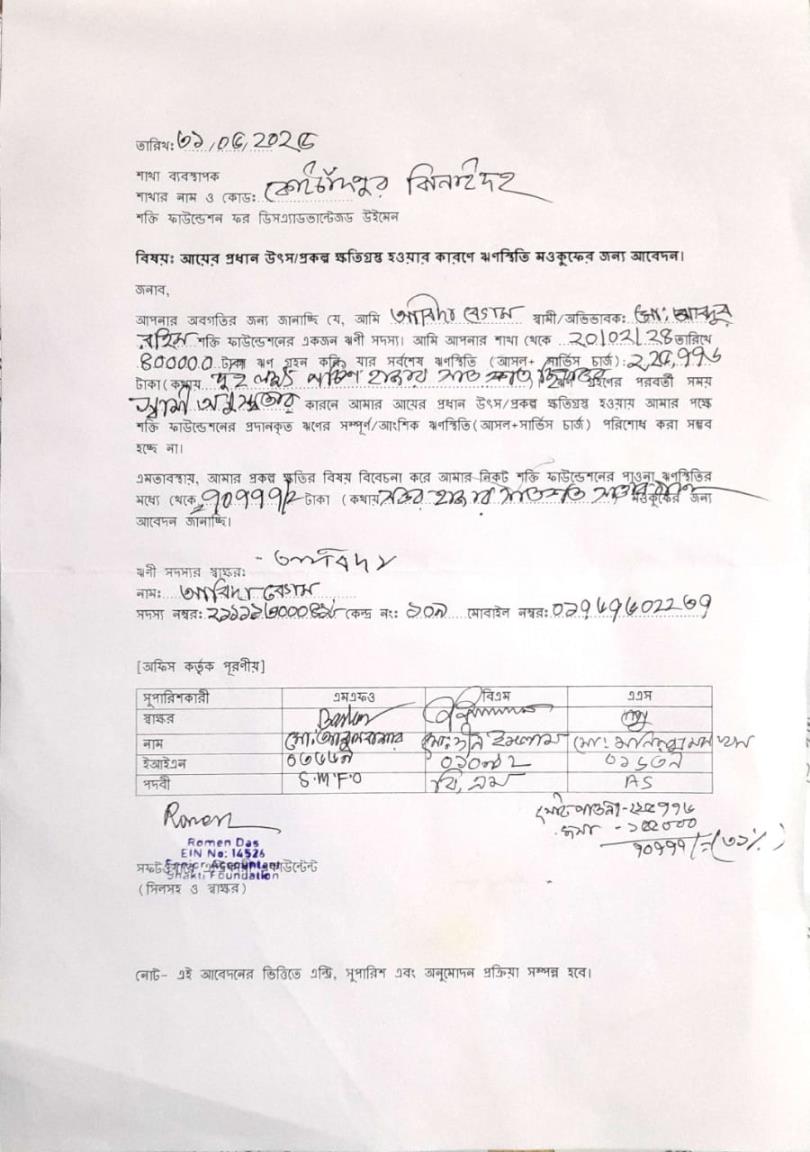 তারিখ: ৩১/০৫/202৫
শাখা ব্যবস্থাপক
শাখার নাম ও কোড: কোটচাঁদপুর ঝিনাইদহ
শক্তি ফাউন্ডেশন ফর ডিসএ্যাডভান্টেজড উইমেন
বিষয়: আয়ের প্রধান উৎস/প্রকল্প ক্ষতিগ্রস্ত হওয়ার কারণে ঋণস্থিতি মওকুফের জন্য আবেদন।
জনাব,
আপনার অবগতির জন্য জানাচ্ছি যে, আমি আবিদা বেগম স্বামী/অভিভাবক: মো: আব্দুর
রহিম শক্তি ফাউন্ডেশনের একজন ঋণী সদস্য। আমি আপনার শাখা থেকে 20/02/28 তারিখে
800000 টাকা ঋণ গ্রহন করি। যার সর্বশেষ ঋণস্থিতি (আসল+ সার্ভিস চার্জ):
টাকা (কথায় দুই লক্ষ পঁচিশ হাজার সাত শত গ্রহণের পরবর্তী সময়
স্বামী অসুস্থতার কারনে আমার আয়ের প্রধান উৎস/প্রকল্প ক্ষতিগ্রস্ত হওয়ায় আমার পক্ষে
শক্তি ফাউন্ডেশনের প্রদানকৃত ঋণের সম্পূর্ণ/আংশিক ঋণস্থিতি(আসল+সার্ভিস চার্জ) পরিশোধ করা সম্ভব
হচ্ছে না।
এমতাবস্থায়, আমার প্রকল্প ক্ষতির বিষয় বিবেচনা করে আমার নিকট শক্তি ফাউন্ডেশনের পাওনা ঋণস্থিতির
মধ্যে থেকে টাকা (কথায় সত্তর হাজার সাতশত মওকুফের জন্য
আবেদন জানাচ্ছি।
আবিদা
ঋণী সদস্যর স্বাক্ষর:
নাম: আবিদা বেগম
সদস্য নম্বর: কেন্দ্র নং: ১০৯ মোবাইল নম্বর:
[অফিস কর্তৃক পূরণীয়]
সুপারিশকারী এমএফও বিএম এএস
স্বাক্ষর
নাম মো: আবুল বাসার মো: ইসলাম মো:
ইআইএন
পদবী S.M.F.O বি, এম AS
মোট পাওনা -
জমা -
Romen
Romen Das
EIN No: 14526
Senior Accountant
Shakti Foundation
(সিলসহ ও স্বাক্ষর)
নোট- এই আবেদনের ভিত্তিতে এন্ট্রি, সুপারিশ এবং অনুমোদন প্রক্রিয়া সম্পন্ন হবে।